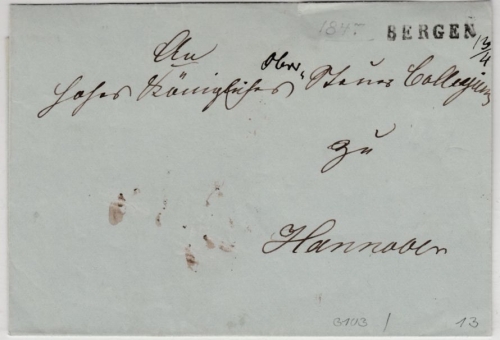 1845
BERGEN
13/4
An
Ober
hohes Königliches Steuer Collegium
zu
Hannover
3103 /
13